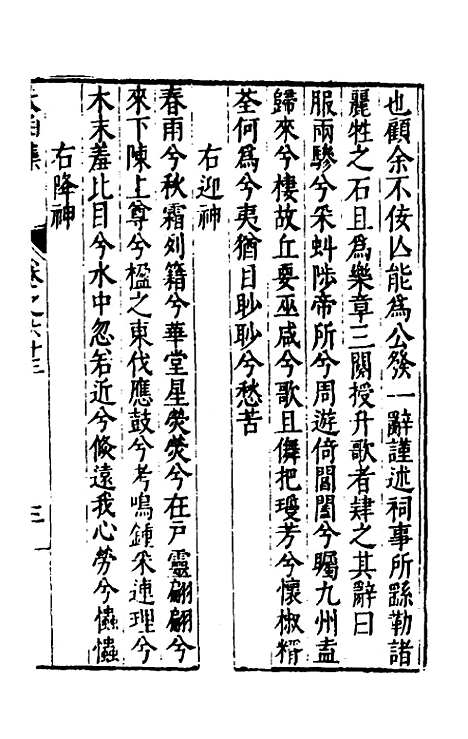 也顧余不佞亾能為公發一辭謹述祠事所繇勒諸
麗牲之石且為樂章三闋授升歌者肄之其辭曰
服兩驂兮采虯陟帝所兮周遊倚閶闔兮矚九州盍
歸來兮棲故丘要巫咸兮歌且儛把瓊芳兮懷椒糈
荃何為兮夷猶目眇眇兮愁苦
右迎神
春雨兮秋霜列籍兮華堂星熒熒兮在戶靈翩翩兮
來下陳上尊兮楹之東伐應鼓兮考鳴鍾采連理兮
木末羞比目兮水中忽若近兮倐遠我心勞兮𢥞𢥞
右降神
太函集
卷之六十三
三